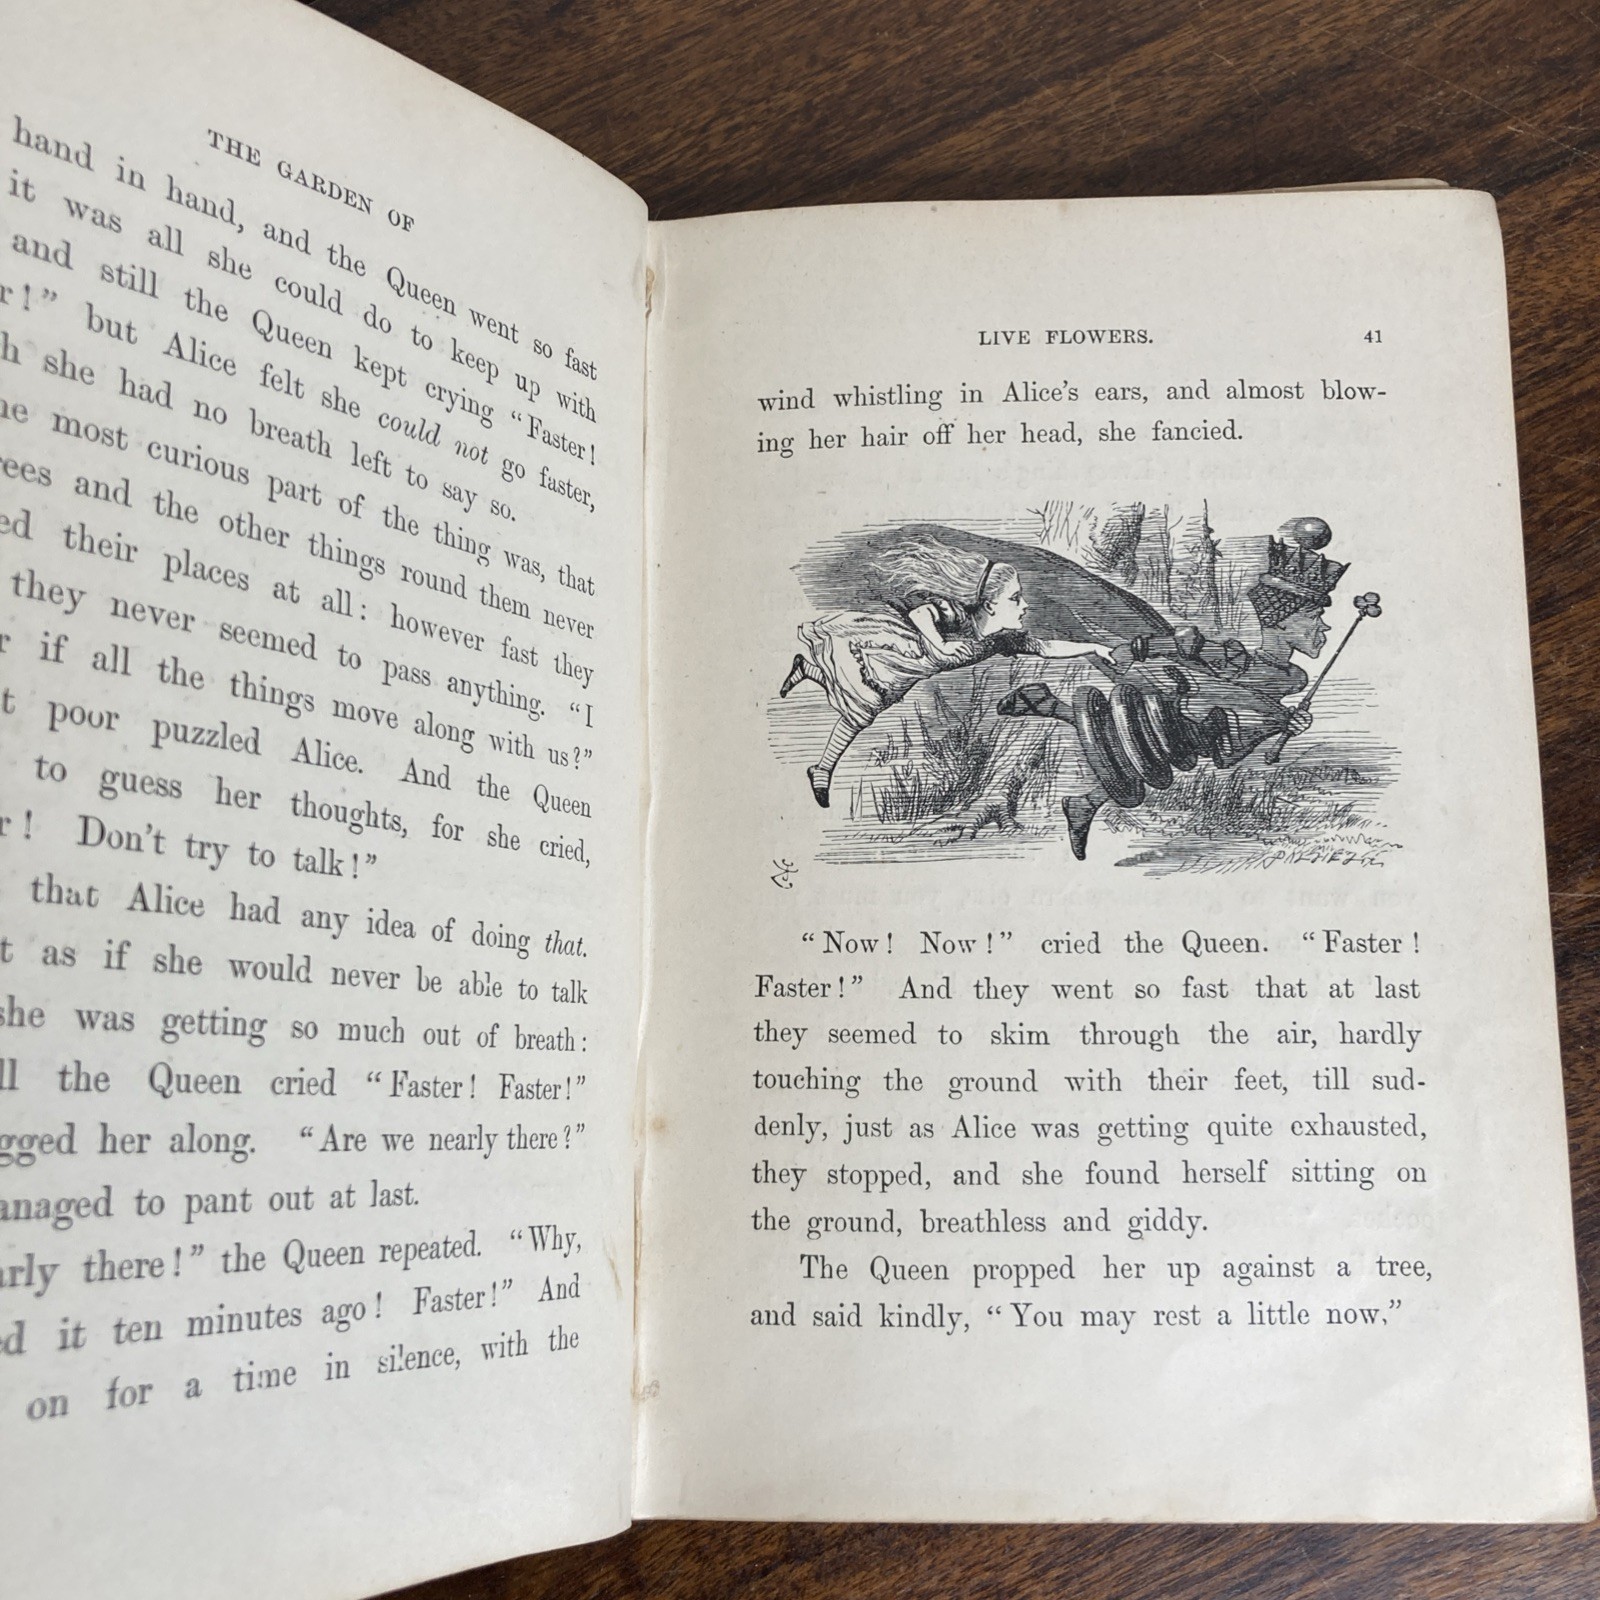 THE GARDEN OF
hand in hand, and the Queen went so fast
it was all she could do to keep up with
and still the Queen kept crying “Faster!
r!” but Alice felt she could not go faster,
h she had no breath left to say so.
most curious part of the thing was, that
rees and the other things round them never
ed their places at all: however fast they
they never seemed to pass anything. “I
r if all the things move along with us?”
t poor puzzled Alice. And the Queen
to guess her thoughts, for she cried,
r! Don't try to talk!”
that Alice had any idea of doing that.
t as if she would never be able to talk
she was getting so much out of breath:
ll the Queen cried “Faster! Faster!”
gged her along. “Are we nearly there?”
anaged to pant out at last.
arly there!” the Queen repeated. “Why,
ed it ten minutes ago! Faster!” And
on for a time in silence, with the
LIVE FLOWERS. 41
wind whistling in Alice's ears, and almost blow-
ing her hair off her head, she fancied.
DALZIEL
“Now! Now!” cried the Queen. “Faster!
Faster!” And they went so fast that at last
they seemed to skim through the air, hardly
touching the ground with their feet, till sud-
denly, just as Alice was getting quite exhausted,
they stopped, and she found herself sitting on
the ground, breathless and giddy.
The Queen propped her up against a tree,
and said kindly, “You may rest a little now.”